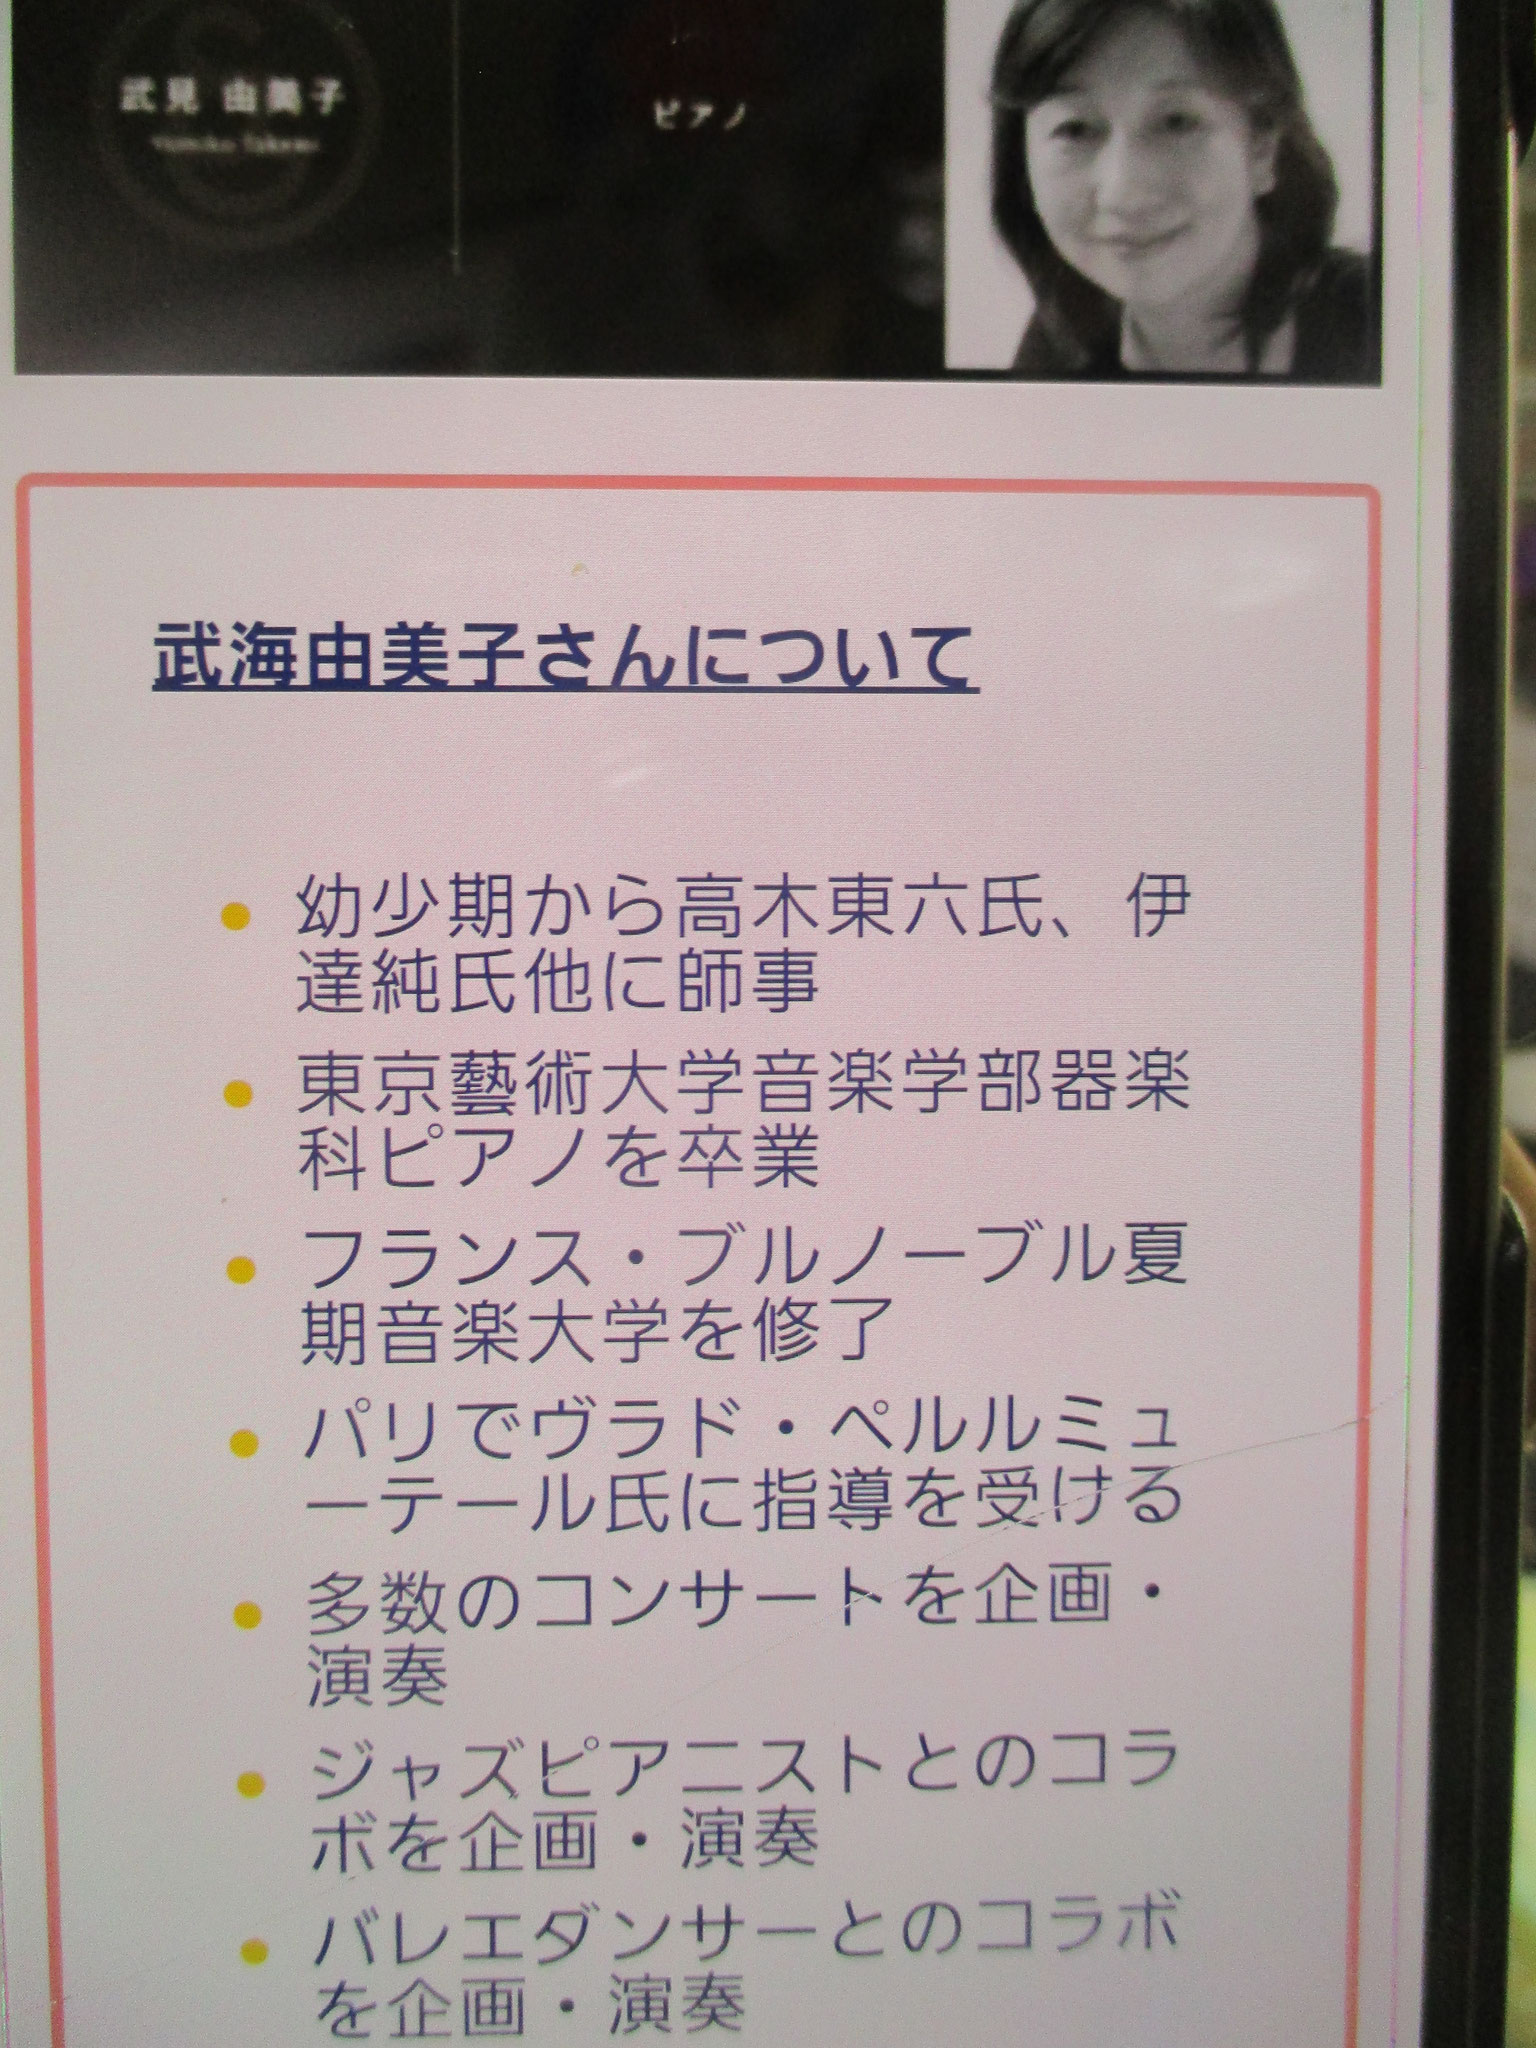 武見 由美子
ピアノ
武海由美子さんについて
幼少期から高木東六氏、伊
達純氏他に師事
東京藝術大学音楽学部器楽
科ピアノを卒業
フランス・ブルノーブル夏
期音楽大学を修了
パリでヴラド・ペルルミュ
ーテール氏に指導を受ける
多数のコンサートを企画・
演奏
ジャズピアニストとのコラ
ボを企画・演奏
バレエダンサーとのコラボ
を企画・演奏